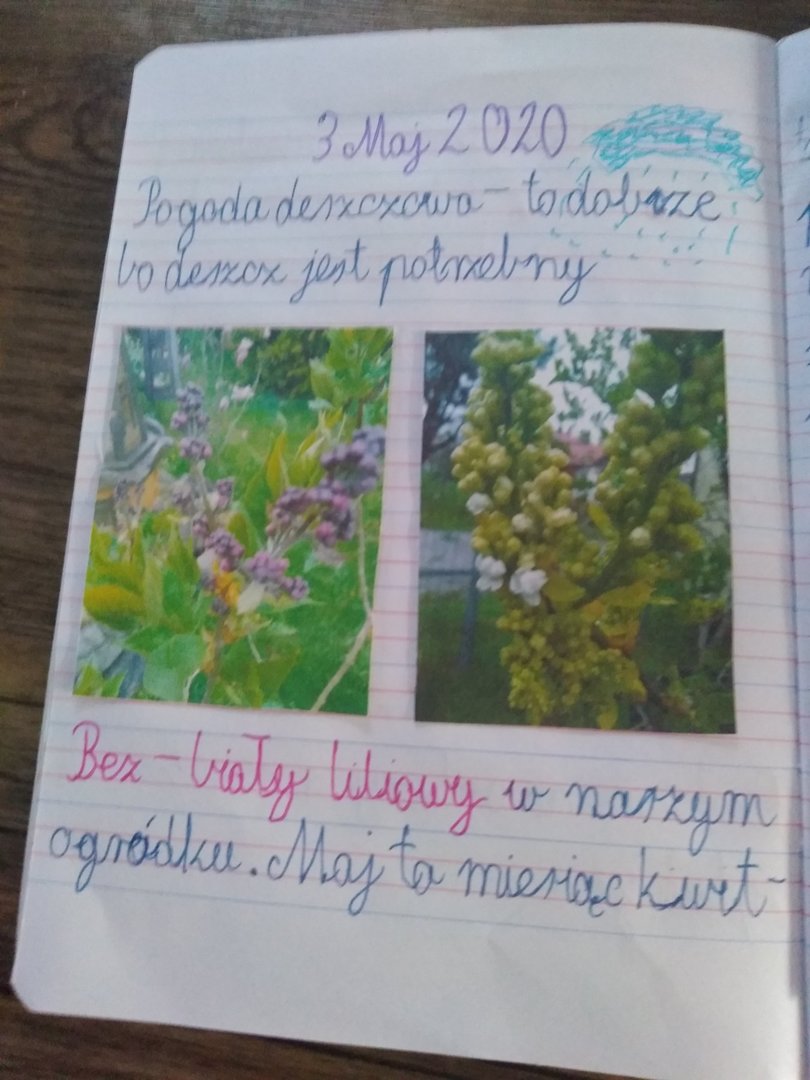 3 Maj 2020
Pogoda deszczowa - to dobrze
bo deszcz jest potrzebny
Bez - biały liliowy w naszym
ogródku. Maj to miesiąc kwit-